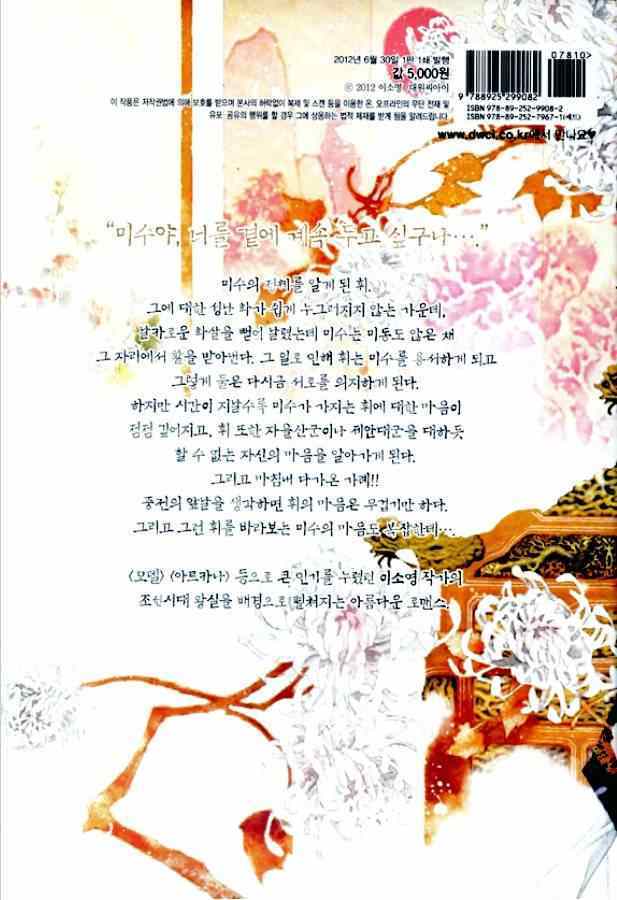 2012년 6월 30일 1판 1쇄 발행
값 5,000원
ⓒ 2012 이소영 / 대원씨아이
이 작품은 저작권법에 의해 보호를 받으며 본사의 허락없이 복제 및 스캔 등을 이용한 온, 오프라인의 무단 전재 및
유포·공유의 행위를 할 경우 그에 상응하는 법적 제재를 받게 됨을 알려드립니다.
07810>
9 788925 299082
ISBN 978-89-252-9908-2
ISBN 978-89-252-7967-1(세트)
www.dwci.co.kr에서 만나요♥
"미수야, 너를 곁에 계속 두고 싶구나…."
미수의 정체를 알게 된 휘.
그에 대한 성난 화가 쉽게 누그러지지 않는 가운데,
날카로운 화살을 뻗어 날렸는데 미수는 미동도 않은 채
그 자리에서 활을 받아낸다. 그 일로 인해 휘는 미수를 용서하게 되고
그렇게 둘은 다시금 서로를 의지하게 된다.
하지만 시간이 지날수록 미수가 가지는 휘에 대한 마음이
점점 깊어지고, 휘 또한 자을산군이나 제안대군을 대하듯
할 수 없는 자신의 마음을 알아가게 된다.
그리고 마침내 다가온 가례!!
중전의 앞날을 생각하면 휘의 마음은 무겁기만 하다.
그리고 그런 휘를 바라보는 미수의 마음도 복잡한데….
〈모델〉 〈아르카나〉 등으로 큰 인기를 누렸던 이소영 작가의
조선시대 왕실을 배경으로 펼쳐지는 아름다운 로맨스!